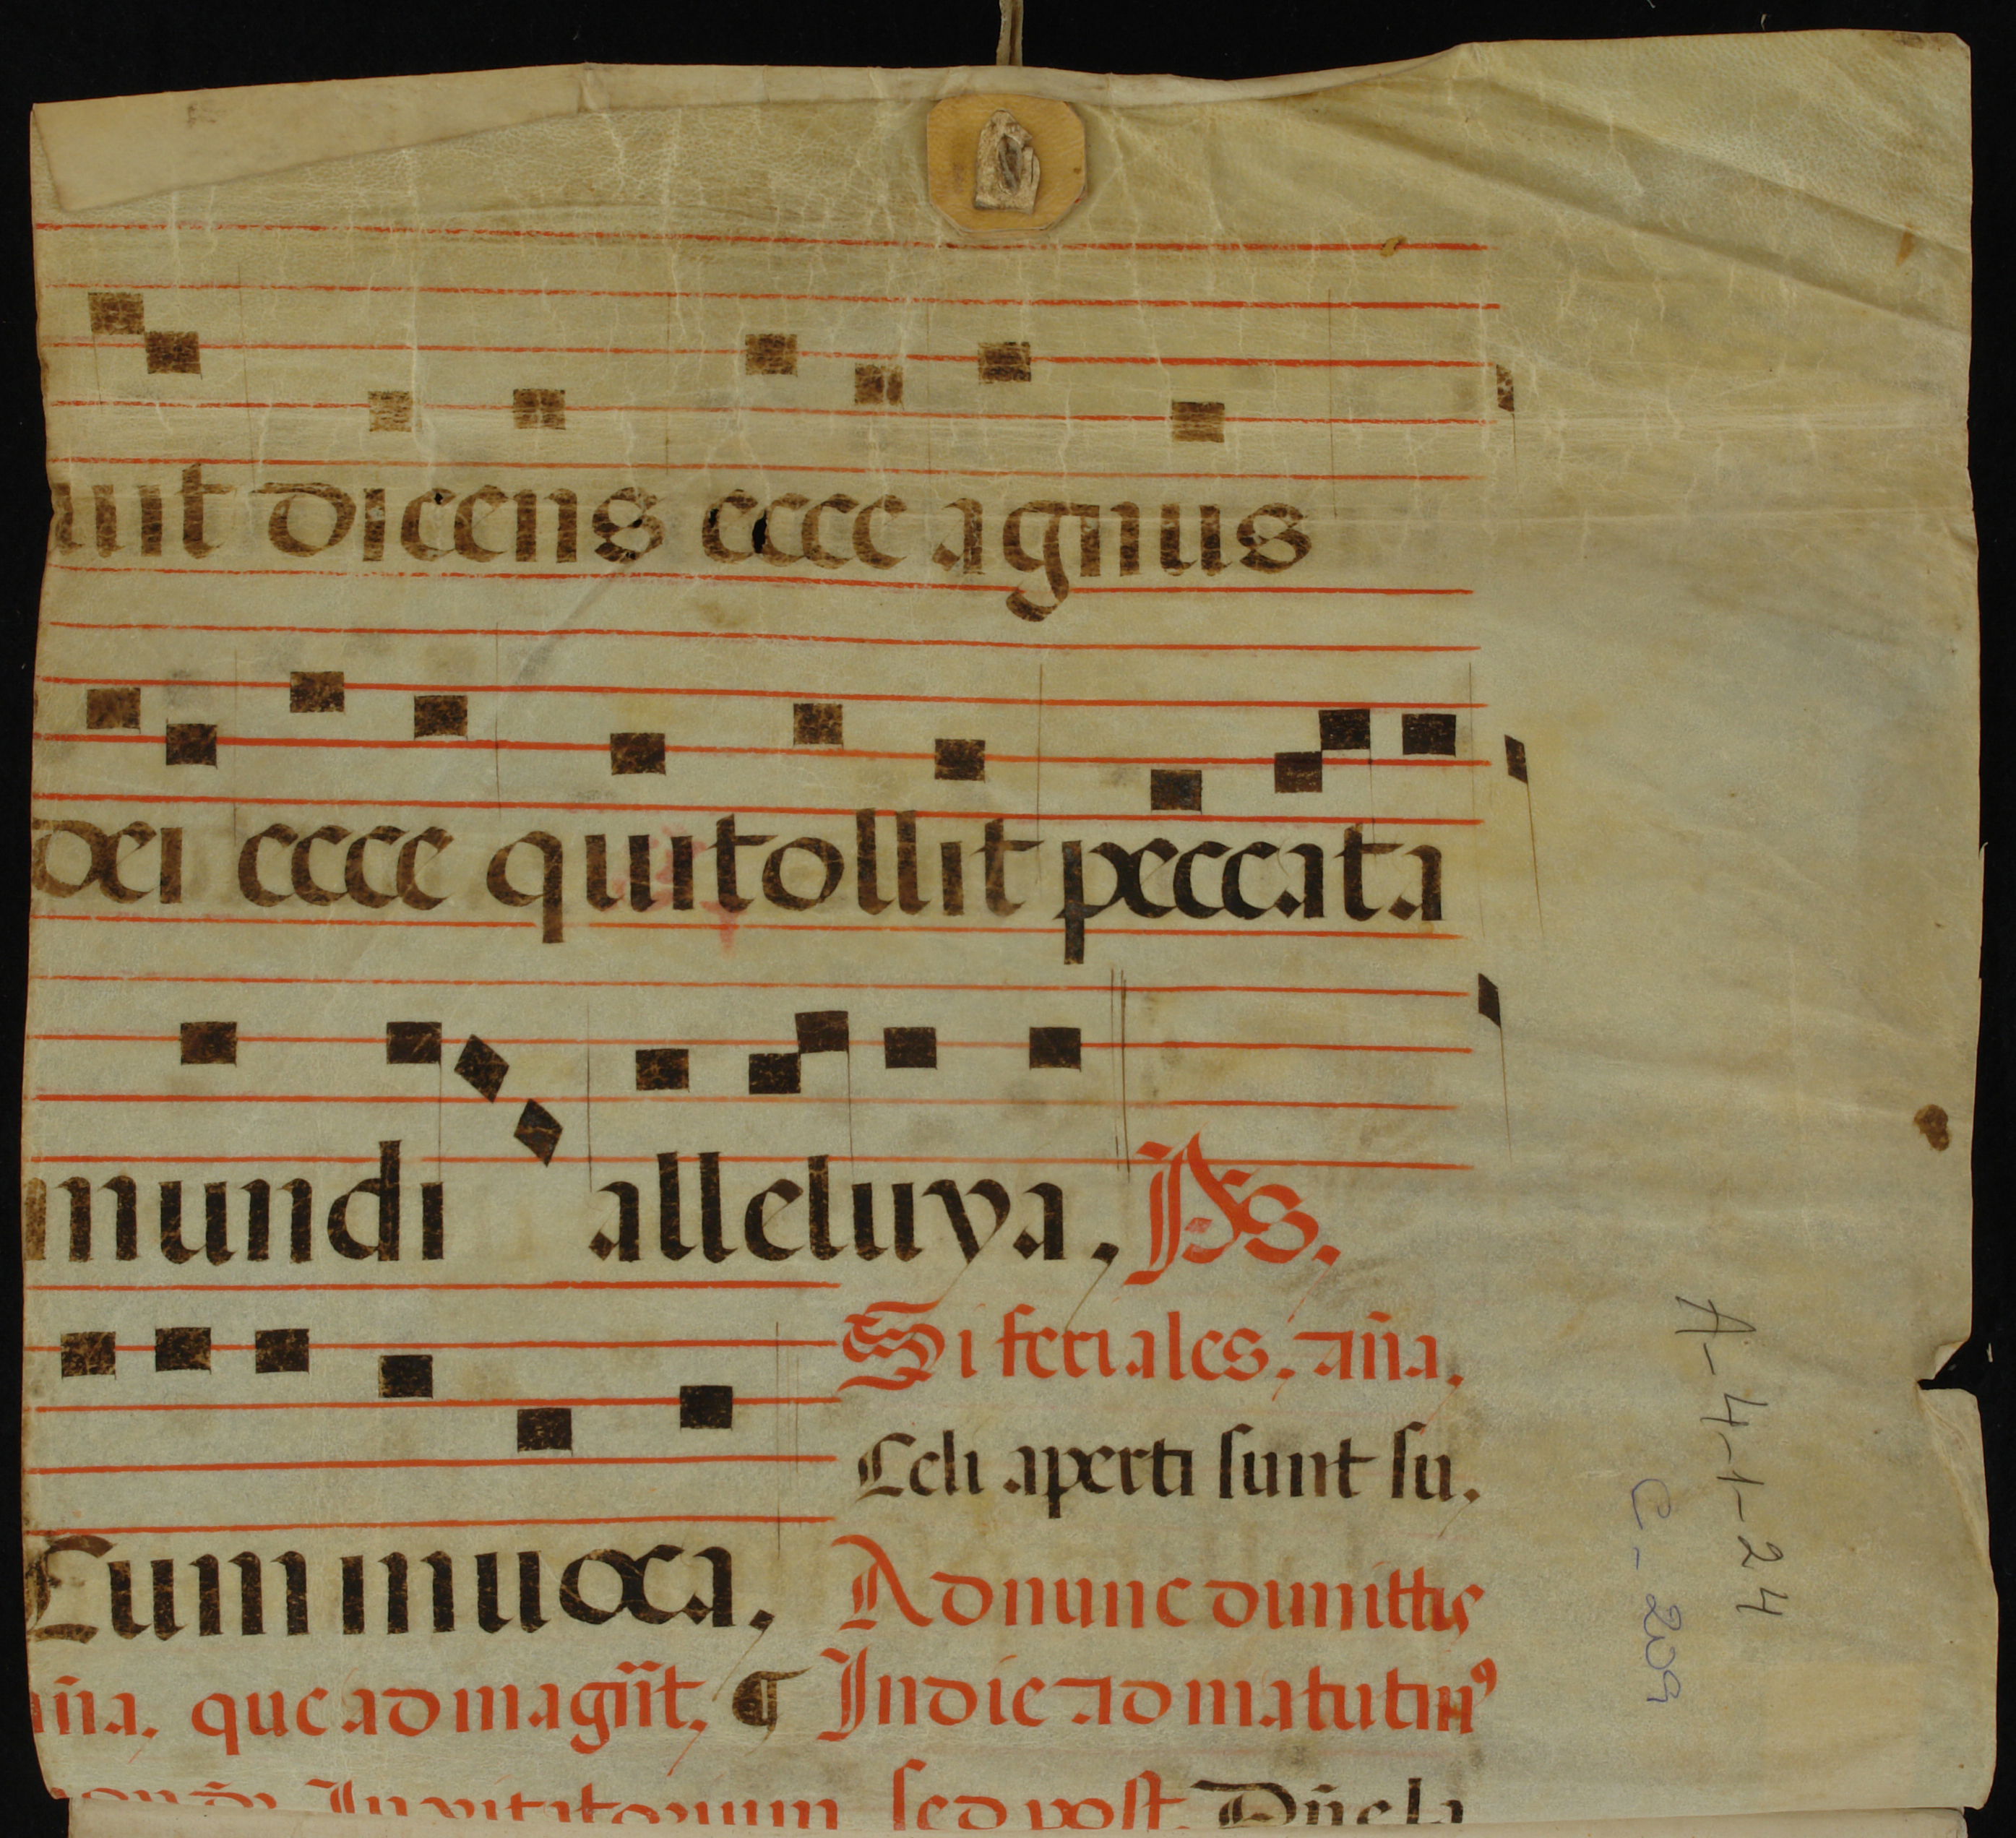 uit dicens ecce agnus
dei ecce qui tollit peccata
mundi alleluya, Ps.
Si feriales. aña.
Celi aperti sunt su.
Cum inuoca. Ad nunc dimittis
aña. que ad magñit. ¶ In die ad matutinꝰ
Inuitatorium sed post. Dñe la
A-4-1-24
C-209